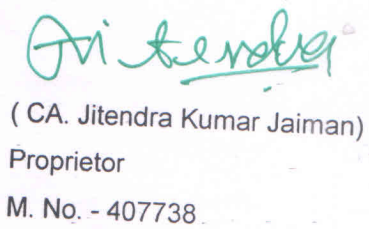 Jitendra
( CA. Jitendra Kumar Jaiman)
Proprietor
M. No. - 407738